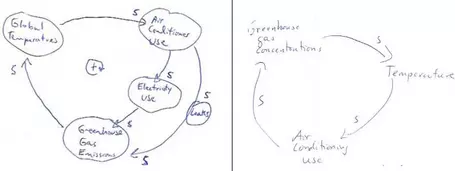 Global
Temperatures
S
Air
Conditioner
Use
S
S
Electricity
Use
Leaks
S
S
Greenhouse
Gas
Emissions
S
Greenhouse
gas
concentrations
S
Temperature
S
Air
Conditioning
use
S